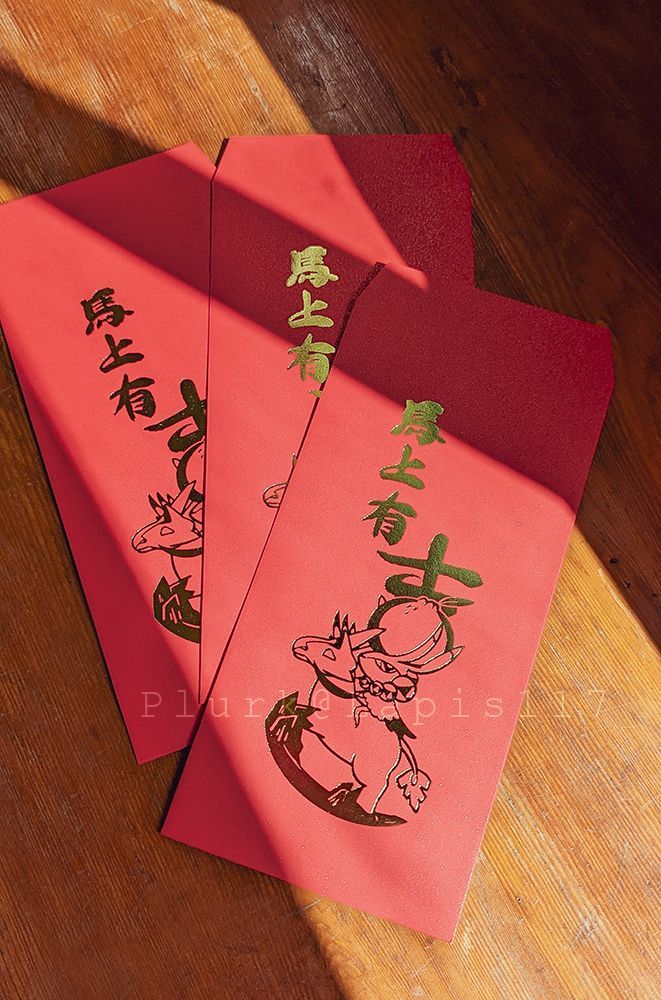 馬上有吉
馬上有
馬上有吉
Plurk@Lapis117